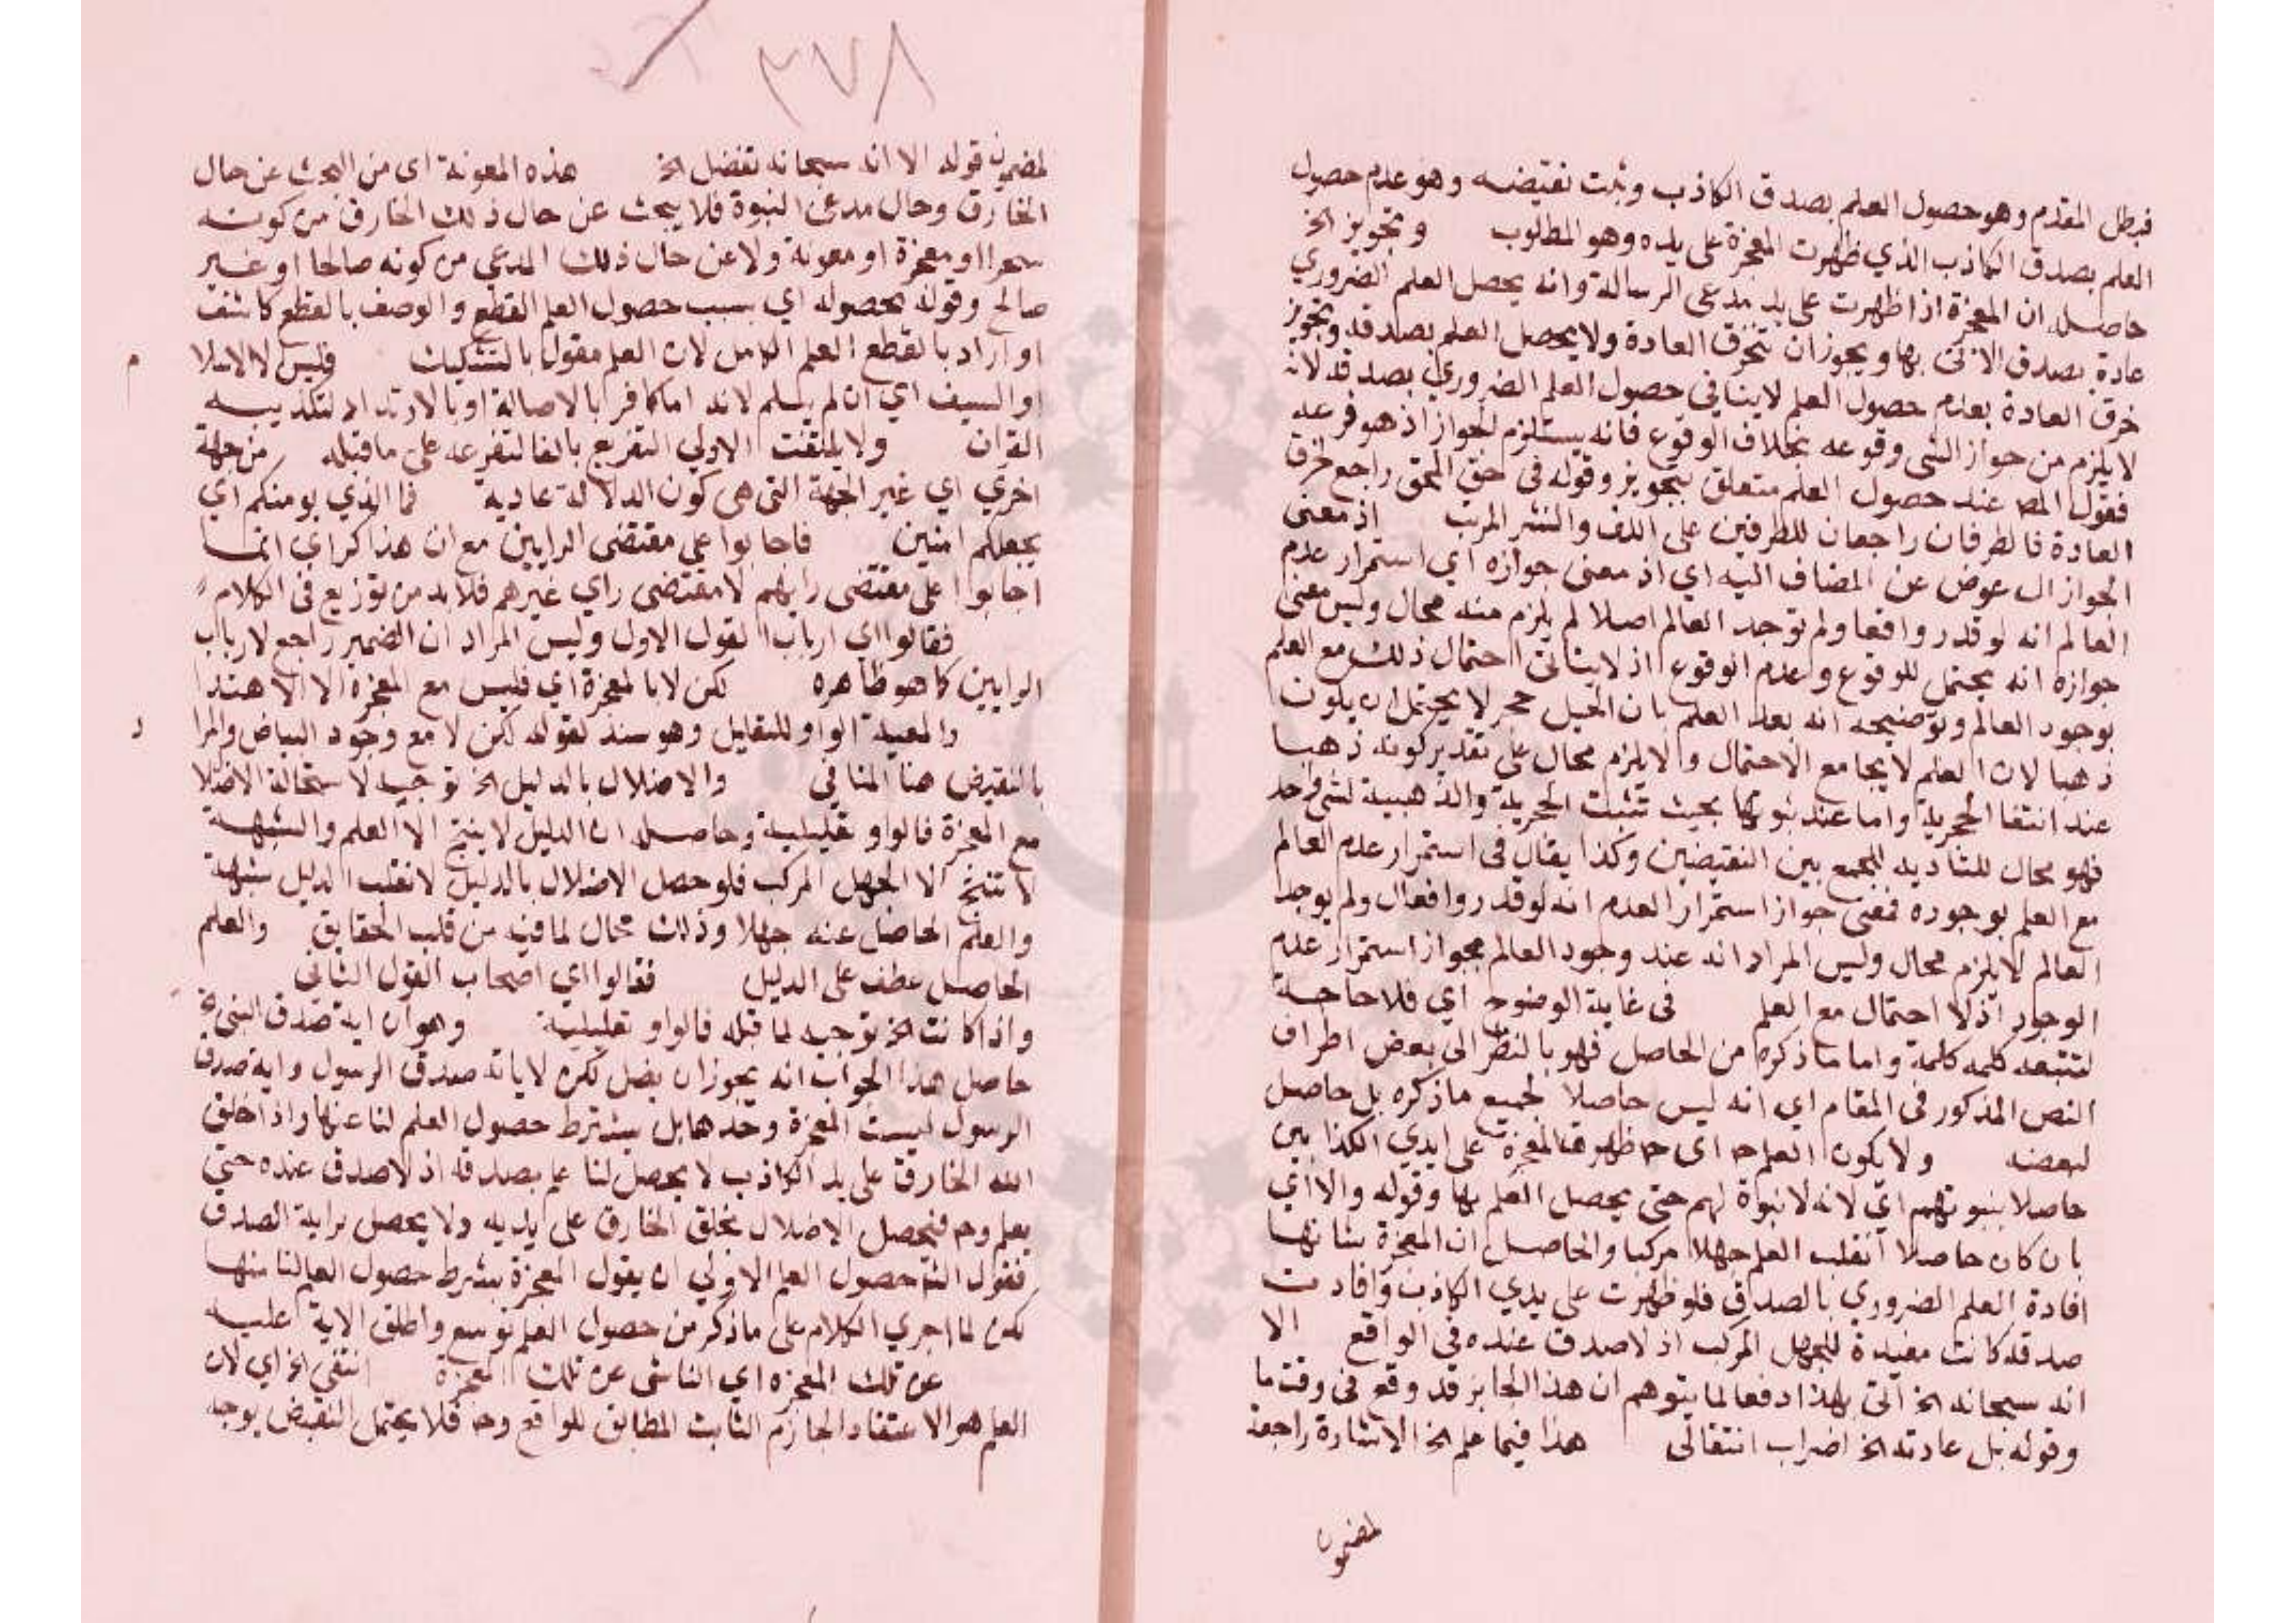 فبطل المقدم وهو حصول العلم بصدق الكاذب وثبت نقيضه وهو عدم حصول
العلم بصدق الكاذب الذي ظهرت المعجزة على يده وهو المطلوب وتجويز الخ
حاصله ان المعجزة اذا ظهرت على يد مدعى الرسالة وانه يحصل العلم الضروري
عادة بصدق الاتى بها ويجوز ان تنخرق العادة ولا يحصل العلم بصدقه وتجويز
خرق العادة بعدم حصول العلم لا ينافي حصول العلم الضروري بصدقه لانه
لا يلزم من جواز الشى وقوعه بخلاف الوقوع فانه يستلزم الجواز اذ هو فرعه
فقول المص عند حصول العلم متعلق بتجويز وقوله فى حق المحق راجع لخرق
العادة فالطرفان راجعان للطرفين على اللف والنشر المرتب اذ معنى
الجواز ال عوض عن المضاف اليه اي اذ معنى جوازه اي استمرار عدم
العالم انه لو قدر واقعا ولم توجد العالم اصلا لم يلزم منه محال وليس معنى
جوازه انه يحتمل للوقوع وعدم الوقوع اذ لا يتاتى احتمال ذلك مع العلم
بوجود العالم وتوضيحه انه بعد العلم بان الجبل حجر لا يحتمل ان يكون
ذهبا لان العلم لا يجامع الاحتمال والا يلزم محال على تقدير كونه ذهبا
عند انتفا الحجرية واما عند ثبوتها بحيث تثبت الحجرية والذهبية لشى واحد
فهو محال للتاديه للجمع بين النقيضين وكذا يقال فى استمرار عدم العالم
مع العلم بوجوده فمعنى جواز استمرار العدم انه لو قدر واقعا ولم يوجد
العالم لا يلزم محال وليس المراد انه عند وجود العالم يجوز استمرار عدم
الوجود اذ لا احتمال مع العلم فى غاية الوضوح اي فلا حاجة
لتتبعه كلمه كلمة واما ما ذكره من الحاصل فهو بالنظر الى بعض اطراف
النص المذكور فى المقام اي انه ليس حاصلا لجميع ما ذكره بل حاصل
لبعضه ولا يكون العلم ح اى ح ظهرت المعجزة على ايدي الكذابين
حاصلا بنبوتهم اي لانه لا نبوة لهم حتى يحصل العلم بها وقوله والا اي
بان كان حاصلا انقلب العلم جهلا مركبا والحاصل ان المعجزة شانها
افادة العلم الضروري بالصدق فلو ظهرت على يدي الكاذب وافادت
صدقه كانت مفيدة للجهل المركب اذ لا صدق عنده فى الواقع الا
انه سبحانه الخ اتى بهذا دفعا لما يتوهم ان هذا الجايز قد وقع فى وقت ما
وقوله بل عادته الخ اضراب انتقالى هذا فيما علم الخ الاشارة راجعة
لمضمون
٣٧٨
لمضمون قوله الا انه سبحانه تفضل الخ هذه المعونة اى من البحث عن حال
الخارق وحال مدعى النبوة فلا يبحث عن حال ذلك الخارق من كونه
سحرا او معجزة او معونة ولا عن حال ذلك المدعي من كونه صالحا او غير
صالح وقوله بحصوله اي بسبب حصول العلم القطع والوصف بالقطع كاشف
او اراد بالقطع العلم الكامل لان العلم مقول بالتشكيك فليس الا الاسلا م
او السيف اي ان لم يسلم لانه اما كافر بالاصالة او بالارتداد لتكذيبه
القران ولا يلتفت الاولي التفريع بالفا لتفرعه على ما قبله من جهة
اخري اي غير الجهة التى هى كون الدلالة عادية فما الذي يومنكم اي
يجعلكم امنين فاجابوا على مقتضى الرايين مع ان هذا كراي انما
اجابوا على مقتضى رايهم لا مقتضى راي غيرهم فلا بد من توزيع فى الكلام
فقالوا اي ارباب القول الاول وليس المراد ان الضمير راجع لارباب
الرايين كما هو ظاهره لكن لا بالمعجزة اي فليس مع المعجزة الا الاهتدا
والمعية الواو للتعليل وهو سند لقوله لكن لا مع وجود البياض والمرا د
بالنقيض هنا المنافي والاضلال بالدليل الخ توجيه لاستحالة الاضلا
مع المعجزة فالواو تعليلية وحاصله ان الدليل لا ينتج الا العلم والشبهة
لا تنتج الا الجهل المركب فلو حصل الاضلال بالدليل لانقلب الدليل شبهة
والعلم الحاصل عنه جهلا وذلك محال لما فيه من قلب الحقايق والعلم
الحاصل عطف على الدليل فقالوا اي اصحاب القول الثانى
واذا كانت الخ توجيه لما قبله فالواو تعليلية وهو ان اية صدق النبى الخ
حاصل هذا الجواب انه يجوز ان يضل لكن لا باية صدق الرسول واية صدق
الرسول ليست المعجزة وحدها بل بشرط حصول العلم لنا عنها واذا خلق
الله الخارق على يد الكاذب لا يحصل لنا علم بصدقه اذ لا صدق عنده حتى
يعلم وح فيحصل الاضلال بخلق الخارق على يديه ولا يحصل براية الصدق
فقول الش حصول العلم الاولي ان يقول المعجزة بشرط حصول العلم لنا منها
لكن لما اجري الكلام على ما ذكر من حصول العلم توسع واطلق الاية عليه
عن تلك المعجزه اي الناشى عن تلك المعجزة انتفى الخ اي لان
العلم هو الاعتقاد الجازم الثابت المطابق للواقع وح فلا يحتمل النقيض بوجه